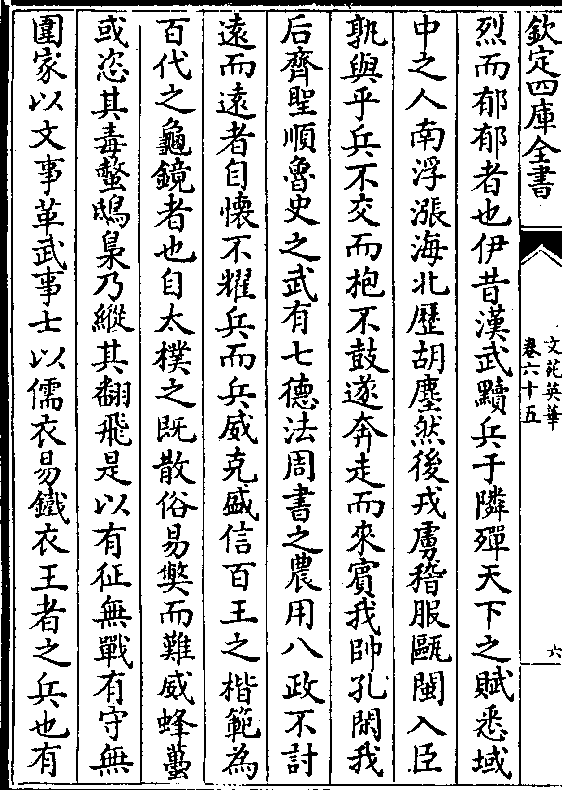 欽定四庫全書
文苑英華
卷六十五
六
烈而郁郁者也伊昔漢武黷兵于隣殫天下之賦悉域
中之人南浮漲海北歷胡塵然後戎虜稽服甌閩入臣
孰與乎兵不交而抱不鼓遂奔走而來賓我帥孔閑我
后齊聖順魯史之武有七德法周書之農用八政不討
遠而遠者自懷不耀兵而兵威克盛信百王之楷範為
百代之龜鏡者也自太樸之既散俗易獘而難威蜂蠆
或恣其毒螫鴟梟乃縱其翻飛是以有征無戰有守無
圍家以文事革武事士以儒衣易鐵衣王者之兵也有